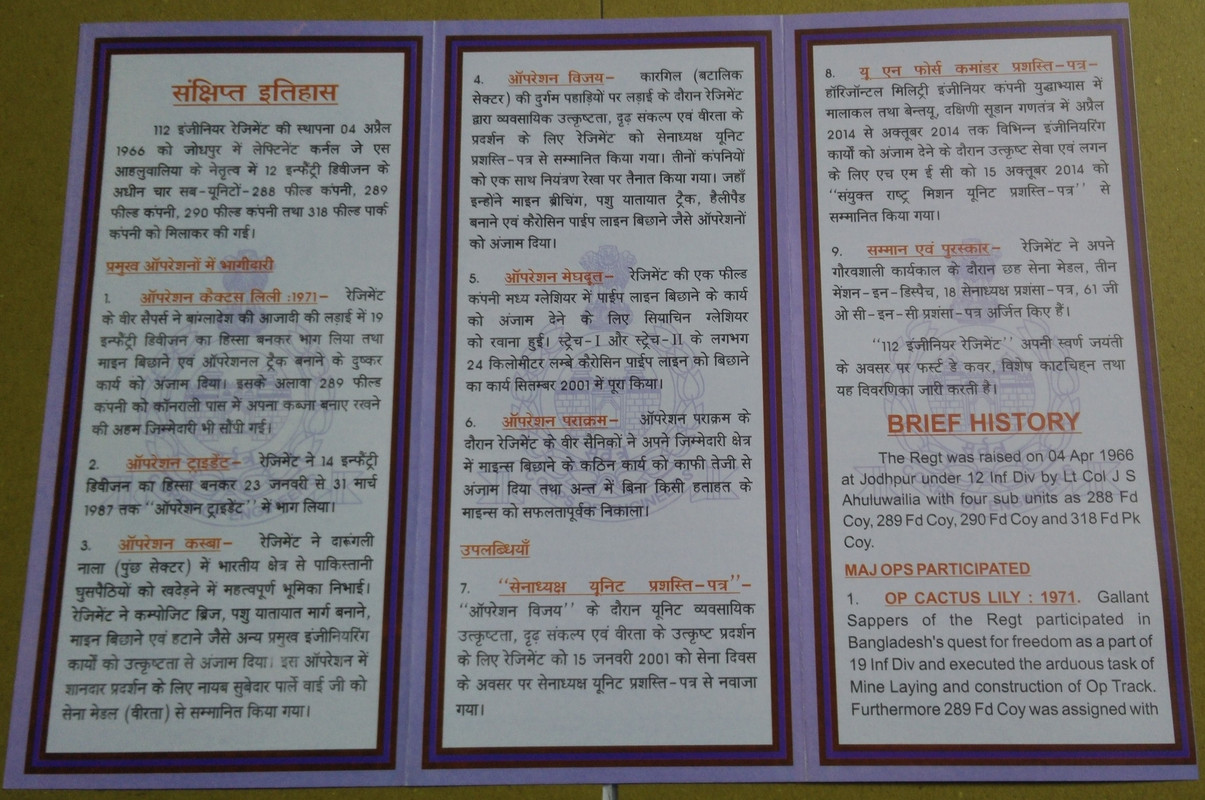 संक्षिप्त इतिहास
112 इंजीनियर रेजिमेंट की स्थापना 04 अप्रैल
1966 को जोधपुर में लेफ्टिनेंट कर्नल जे एस
आहलुवालिया के नेतृत्व में 12 इन्फैंट्री डिवीजन के
अधीन चार सब-यूनिटों-288 फील्ड कंपनी, 289
फील्ड कंपनी, 290 फील्ड कंपनी तथा 318 फील्ड पार्क
कंपनी को मिलाकर की गई।
प्रमुख ऑपरेशनों में भागीदारी
1. ऑपरेशन कैक्टस लिली :1971- रेजिमेंट
के वीर सैपर्स ने बांग्लादेश की आजादी की लड़ाई में 19
इन्फैंट्री डिवीजन का हिस्सा बनकर भाग लिया तथा
माइन बिछाने एवं ऑपरेशनल ट्रैक बनाने के दुष्कर
कार्य को अंजाम दिया। इसके अलावा 289 फील्ड
कंपनी को कॉनराली पास में अपना कब्जा बनाए रखने
की अहम जिम्मेदारी भी सौंपी गई।
2. ऑपरेशन ट्राइडेंट- रेजिमेंट ने 14 इन्फैंट्री
डिवीजन का हिस्सा बनकर 23 जनवरी से 31 मार्च
1987 तक "ऑपरेशन ट्राइडेंट" में भाग लिया।
3. ऑपरेशन कस्बा- रेजिमेंट ने दारूंगली
नाला (पुंछ सेक्टर) में भारतीय क्षेत्र से पाकिस्तानी
घुसपैठियों को खदेड़ने में महत्वपूर्ण भूमिका निभाई।
रेजिमेंट ने कम्पोजिट ब्रिज, पशु यातायात मार्ग बनाने,
माइन बिछाने एवं हटाने जैसे अन्य प्रमुख इंजीनियरिंग
कार्यों को उत्कृष्टता से अंजाम दिया। इस ऑपरेशन में
शानदार प्रदर्शन के लिए नायब सुबेदार पार्ले वाई जी को
सेना मेडल (वीरता) से सम्मानित किया गया।
4. ऑपरेशन विजय- कारगिल (बटालिक
सेक्टर) की दुर्गम पहाड़ियों पर लड़ाई के दौरान रेजिमेंट
द्वारा व्यवसायिक उत्कृष्टता, दृढ़ संकल्प एवं वीरता के
प्रदर्शन के लिए रेजिमेंट को सेनाध्यक्ष यूनिट
प्रशस्ति-पत्र से सम्मानित किया गया। तीनों कंपनियों
को एक साथ नियंत्रण रेखा पर तैनात किया गया। जहाँ
इन्होंने माइन ब्रीचिंग, पशु यातायात ट्रैक, हैलीपैड
बनाने एवं कैरोसिन पाईप लाइन बिछाने जैसे ऑपरेशनों
को अंजाम दिया।
5. ऑपरेशन मेघदूत्त- रेजिमेंट की एक फील्ड
कंपनी मध्य ग्लेशियर में पाईप लाइन बिछाने के कार्य
को अंजाम देने के लिए सियाचिन ग्लेशियर
को रवाना हुई। स्ट्रेच-I और स्ट्रेच-II के लगभग
24 किलोमीटर लम्बे कैरोसिन पाईप लाइन को बिछाने
का कार्य सितम्बर 2001 में पूरा किया।
6. ऑपरेशन पराक्रम- ऑपरेशन पराक्रम के
दौरान रेजिमेंट के वीर सैनिकों ने अपने जिम्मेदारी क्षेत्र
में माइन्स बिछाने के कठिन कार्य को काफी तेजी से
अंजाम दिया तथा अन्त में बिना किसी हताहत के
माइन्स को सफलतापूर्वक निकाला।
उपलब्धियाँ
7. "सेनाध्यक्ष यूनिट प्रशस्ति-पत्र"-
"ऑपरेशन विजय" के दौरान यूनिट व्यवसायिक
उत्कृष्टता, दृढ़ संकल्प एवं वीरता के उत्कृष्ट प्रदर्शन
के लिए रेजिमेंट को 15 जनवरी 2001 को सेना दिवस
के अवसर पर सेनाध्यक्ष यूनिट प्रशस्ति-पत्र से नवाजा
गया।
8. यू एन फोर्स कमांडर प्रशस्ति-पत्र-
हॉरिजॉन्टल मिलिट्री इंजीनियर कंपनी युद्धाभ्यास में
मालाकल तथा बेन्तयू, दक्षिणी सूडान गणतंत्र में अप्रैल
2014 से अक्तूबर 2014 तक विभिन्न इंजीनियरिंग
कार्यों को अंजाम देने के दौरान उत्कृष्ट सेवा एवं लगन
के लिए एच एम ई सी को 15 अक्तूबर 2014 को
"संयुक्त राष्ट्र मिशन यूनिट प्रशस्ति-पत्र" से
सम्मानित किया गया।
9. सम्मान एवं पुरस्कार- रेजिमेंट ने अपने
गौरवशाली कार्यकाल के दौरान छह सेना मेडल, तीन
मेंशन-इन-डिस्पैच, 18 सेनाध्यक्ष प्रशंसा-पत्र, 61 जी
ओ सी-इन-सी प्रशंसा-पत्र अर्जित किए हैं।
"112 इंजीनियर रेजिमेंट" अपनी स्वर्ण जयंती
के अवसर पर फर्स्ट डे कवर, विशेष काटचिह्न तथा
यह विवरणिका जारी करती है।
BRIEF HISTORY
The Regt was raised on 04 Apr 1966
at Jodhpur under 12 Inf Div by Lt Col J S
Ahuluwailia with four sub units as 288 Fd
Coy, 289 Fd Coy, 290 Fd Coy and 318 Fd Pk
Coy.
MAJ OPS PARTICIPATED
1. OP CACTUS LILY : 1971. Gallant
Sappers of the Regt participated in
Bangladesh's quest for freedom as a part of
19 Inf Div and executed the arduous task of
Mine Laying and construction of Op Track.
Furthermore 289 Fd Coy was assigned with